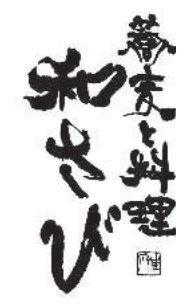 蕎麦と料理
和さび